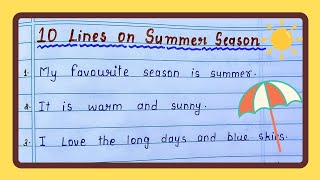 10 Lines on Summer Season
1. My favourite season is summer.
2. It is warm and sunny.
3. I Love the long days and blue skies.